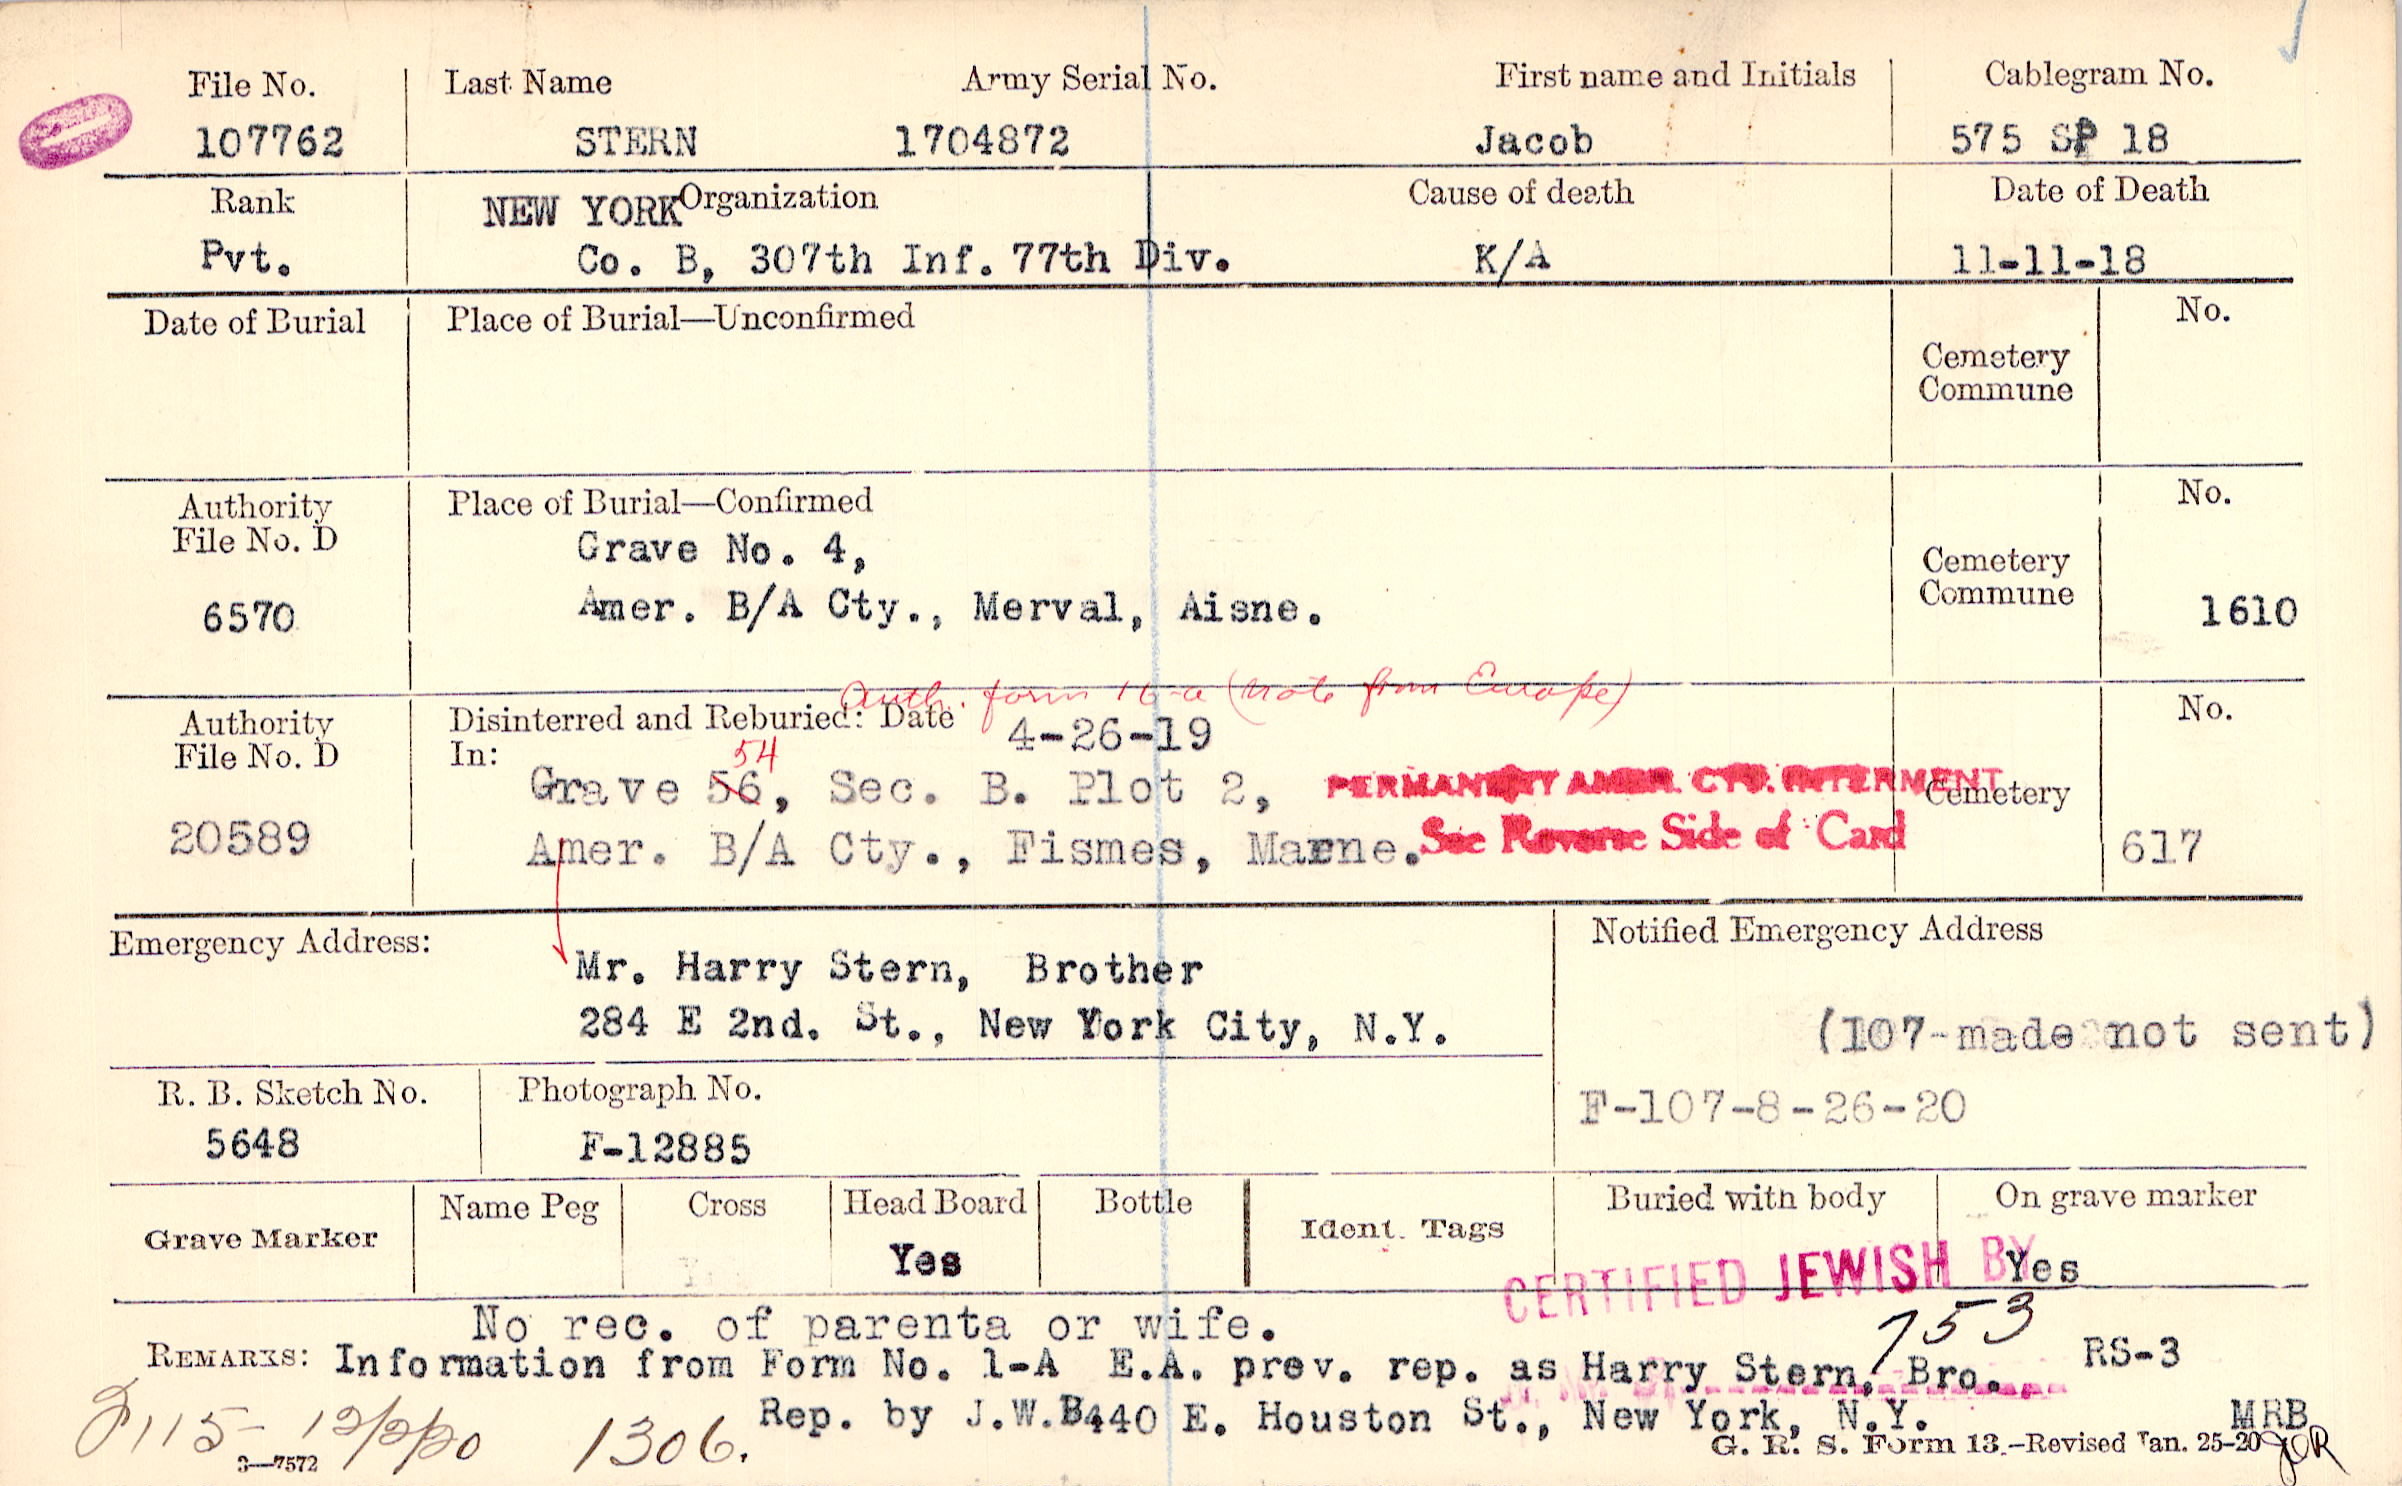 File No. Last Name Army Serial No. First name and Initials Cablegram No.
107762 STERN 1704872 Jacob 575 SP 18
Rank NEW YORK Organization Cause of death Date of Death
Pvt. Co. B, 307th Inf. 77th Div. K/A 11-11-18
Date of Burial Place of Burial—Unconfirmed No.
Cemetery
Commune
Authority Place of Burial—Confirmed No.
File No. D Grave No. 4, Cemetery
6570 Amer. B/A Cty., Merval, Aisne. Commune 1610
Auth. form 16-a (note from Europe)
Authority Disinterred and Reburied: Date 4-26-19 No.
File No. D In: 54
Grave 56, Sec. B. Plot 2, PERMANENT AMER. CTY. INTERMENT Cemetery
20589 Amer. B/A Cty., Fismes, Marne. See Reverse Side of Card 617
Emergency Address: Notified Emergency Address
Mr. Harry Stern, Brother
284 E 2nd. St., New York City, N.Y. (107-made not sent)
R. B. Sketch No. Photograph No. F-107-8-26-20
5648 F-12885
Grave Marker Name Peg Cross Head Board Bottle Ident. Tags Buried with body On grave marker
Yes Yes
CERTIFIED JEWISH BY
No rec. of parenta or wife. 753
REMARKS: Information from Form No. 1-A E.A. prev. rep. as Harry Stern, Bro. RS-3
Rep. by J.W.B. 440 E. Houston St., New York, N.Y. MRB
115- 12/2/20 1306.
3—7572 G. R. S. Form 13.—Revised Jan. 25-20 JOR